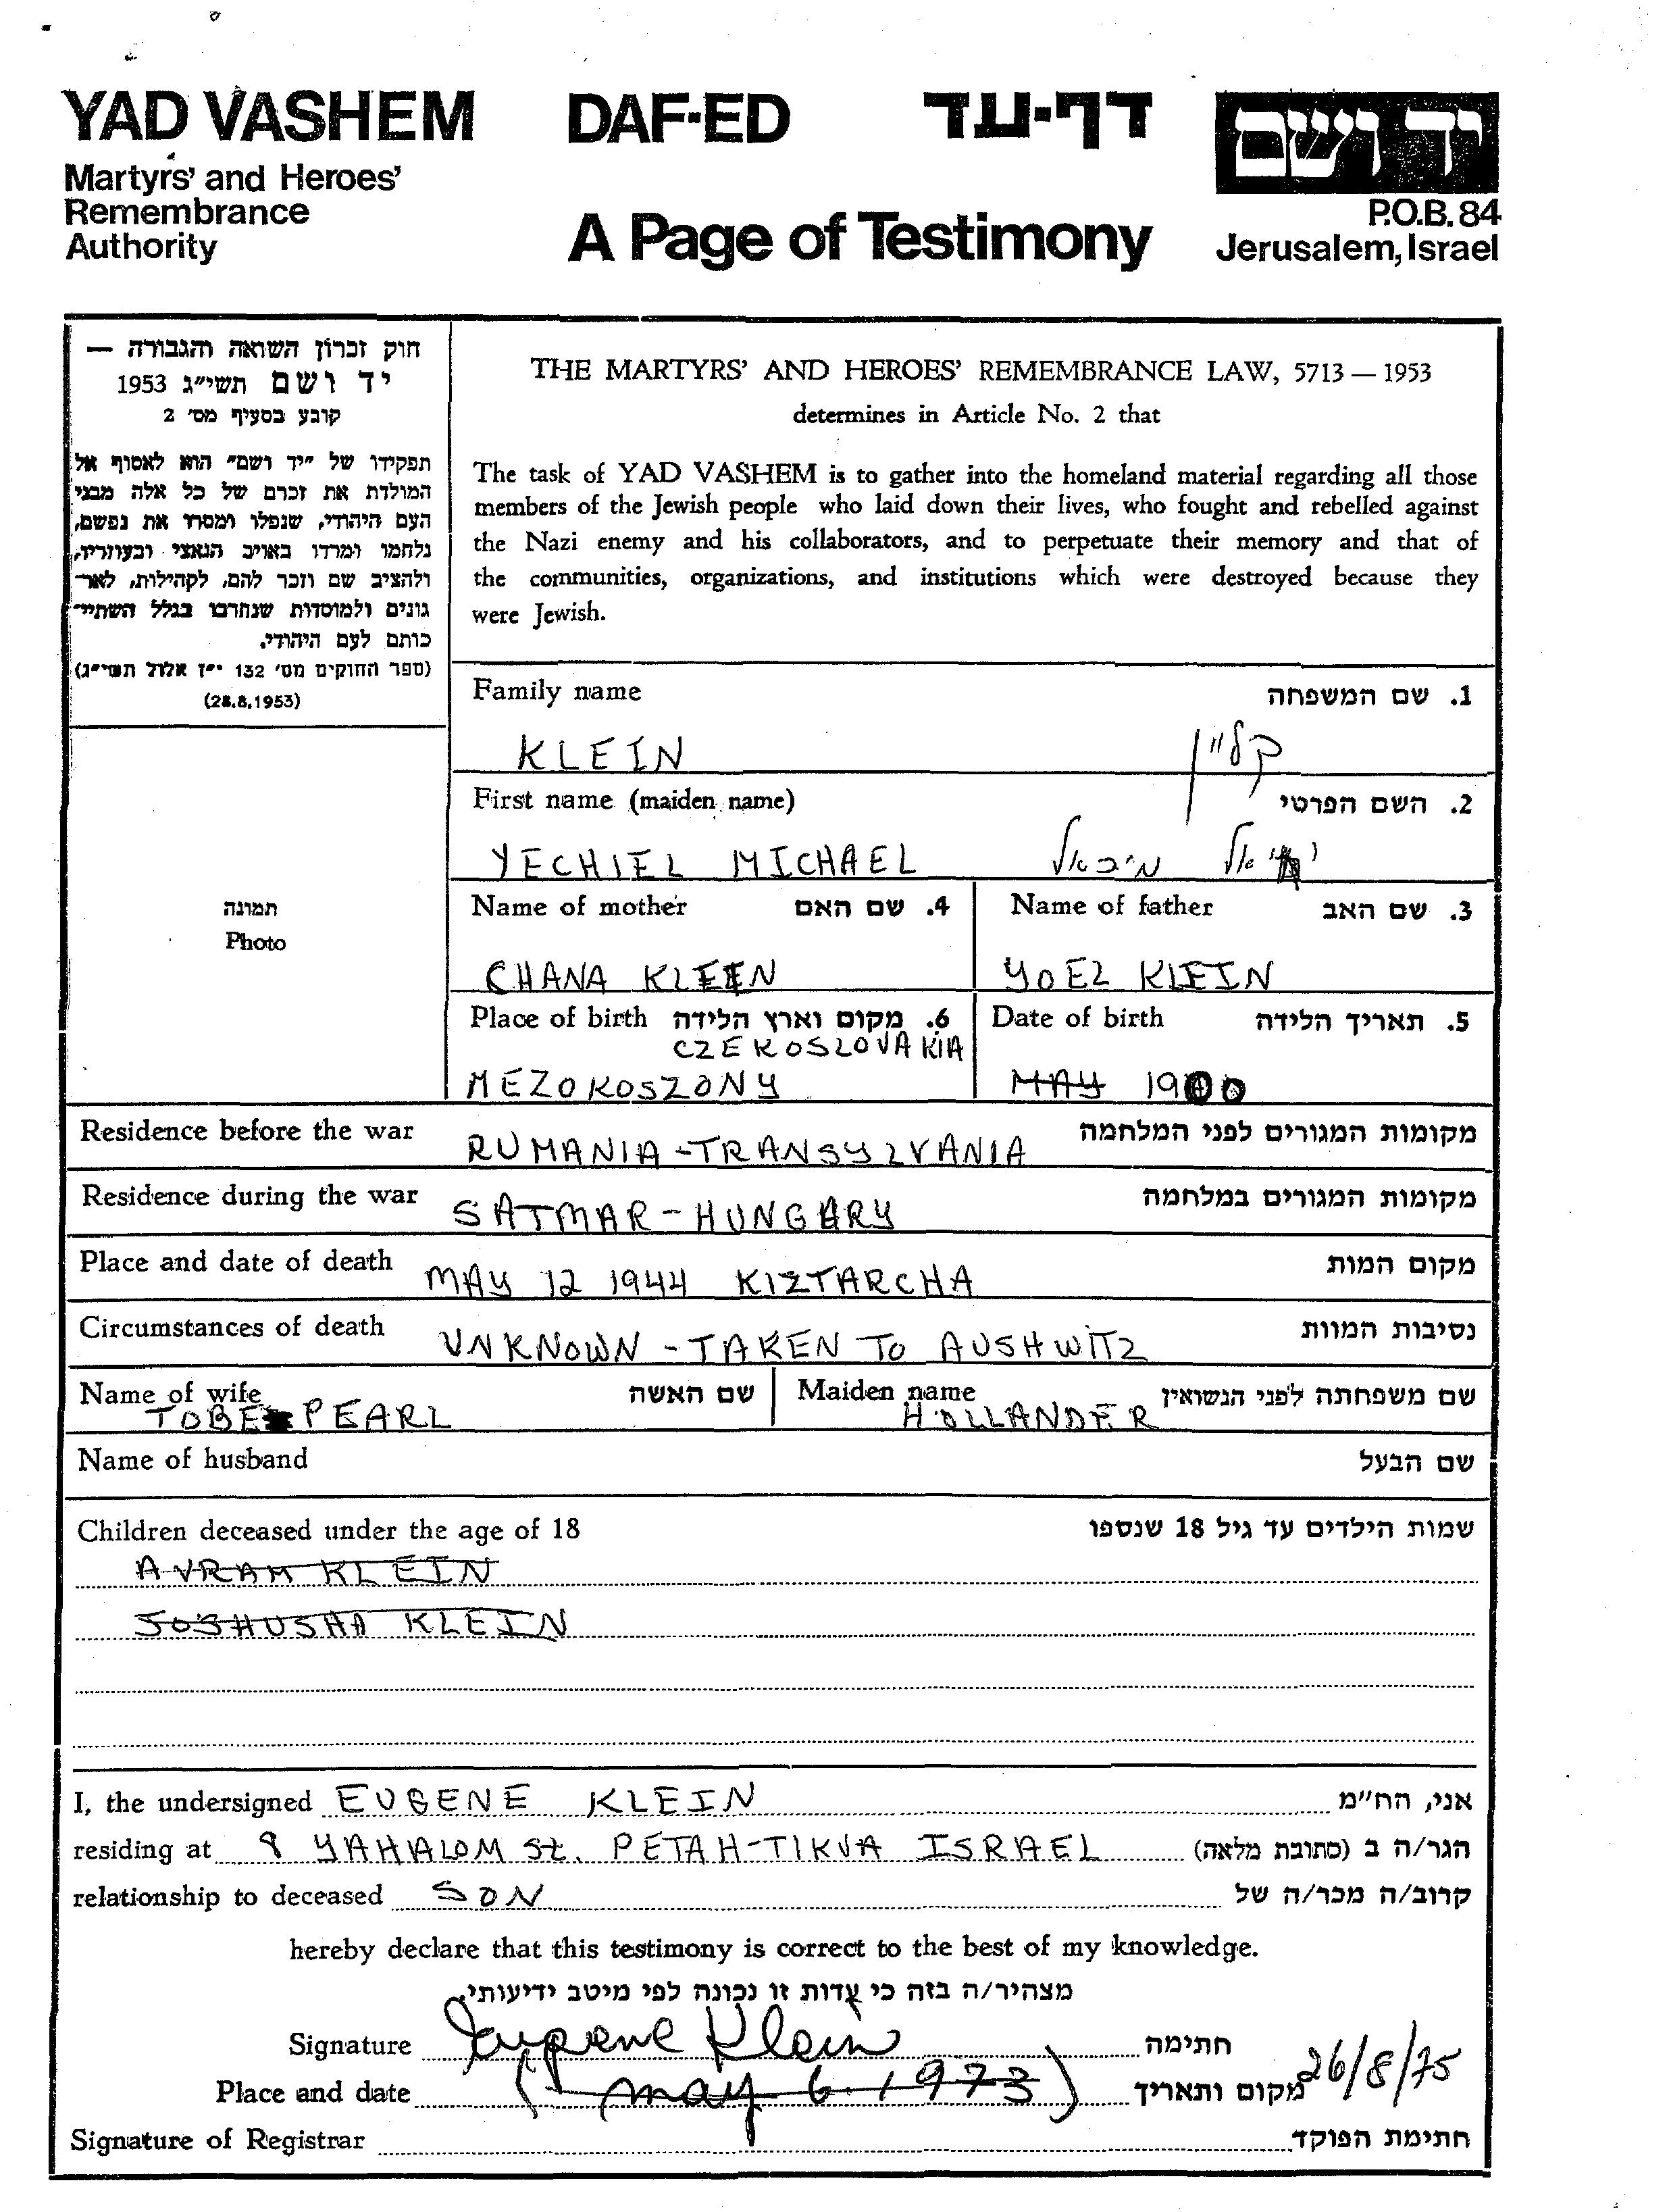 YAD VASHEM DAF-ED דף-עד יד ושם
Martyrs' and Heroes'
Remembrance
Authority
A Page of Testimony
P.O.B. 84
Jerusalem, Israel
חוק זכרון השואה והגבורה —
יד ושם תשי״ג 1953
קובע בסעיף מס׳ 2
תפקידו של ״יד ושם״ הוא לאסוף אל
המולדת את זכרם של כל אלה מבני
העם היהודי, שנפלו ומסרו את נפשם,
נלחמו ומרדו באויב הנאצי ובעוזריו,
ולהציב שם וזכר להם, לקהילות, לאר־
גונים ולמוסדות שנחרבו בגלל השתיי־
כותם לעם היהודי.
(ספר החוקים מס׳ 132 י״ז אלול תשי״ג)
(28.8.1953)
THE MARTYRS' AND HEROES' REMEMBRANCE LAW, 5713 — 1953
determines in Article No. 2 that
The task of YAD VASHEM is to gather into the homeland material regarding all those
members of the Jewish people who laid down their lives, who fought and rebelled against
the Nazi enemy and his collaborators, and to perpetuate their memory and that of
the communities, organizations, and institutions which were destroyed because they
were Jewish.
Family name 1. שם המשפחה
KLEIN קליין
First name (maiden name) 2. השם הפרטי
YECHIEL MICHAEL יחיאל מיכאל
תמונה
Photo
Name of mother 4. שם האם Name of father 3. שם האב
CHANA KLEIN YOEL KLEIN
Place of birth 6. מקום וארץ הלידה Date of birth 5. תאריך הלידה
CZEKOSLOVAKIA
MEZOKOSZONY MAY 1900
Residence before the war RUMANIA-TRANSYLVANIA מקומות המגורים לפני המלחמה
Residence during the war SATMAR-HUNGARY מקומות המגורים במלחמה
Place and date of death MAY 12 1944 KIZTARCHA מקום המות
Circumstances of death UNKNOWN - TAKEN TO AUSHWITZ נסיבות המוות
Name of wife TOBE PEARL שם האשה Maiden name HOLLANDER שם משפחתה לפני הנשואין
Name of husband שם הבעל
Children deceased under the age of 18 שמות הילדים עד גיל 18 שנספו
AVRAM KLEIN
JOSHUSHA KLEIN
I, the undersigned EUGENE KLEIN אני, הח״מ
residing at 8 YAHALOM St. PETAH-TIKVA ISRAEL הגר/ה ב (כתובת מלאה)
relationship to deceased SON קרוב/ה מכר/ה של
hereby declare that this testimony is correct to the best of my knowledge.
מצהיר/ה בזה כי עדות זו נכונה לפי מיטב ידיעותי.
Signature Eugene Klein חתימה
Place and date (May 6. 1973) מקום ותאריך 26/8/75
Signature of Registrar חתימת הפוקד